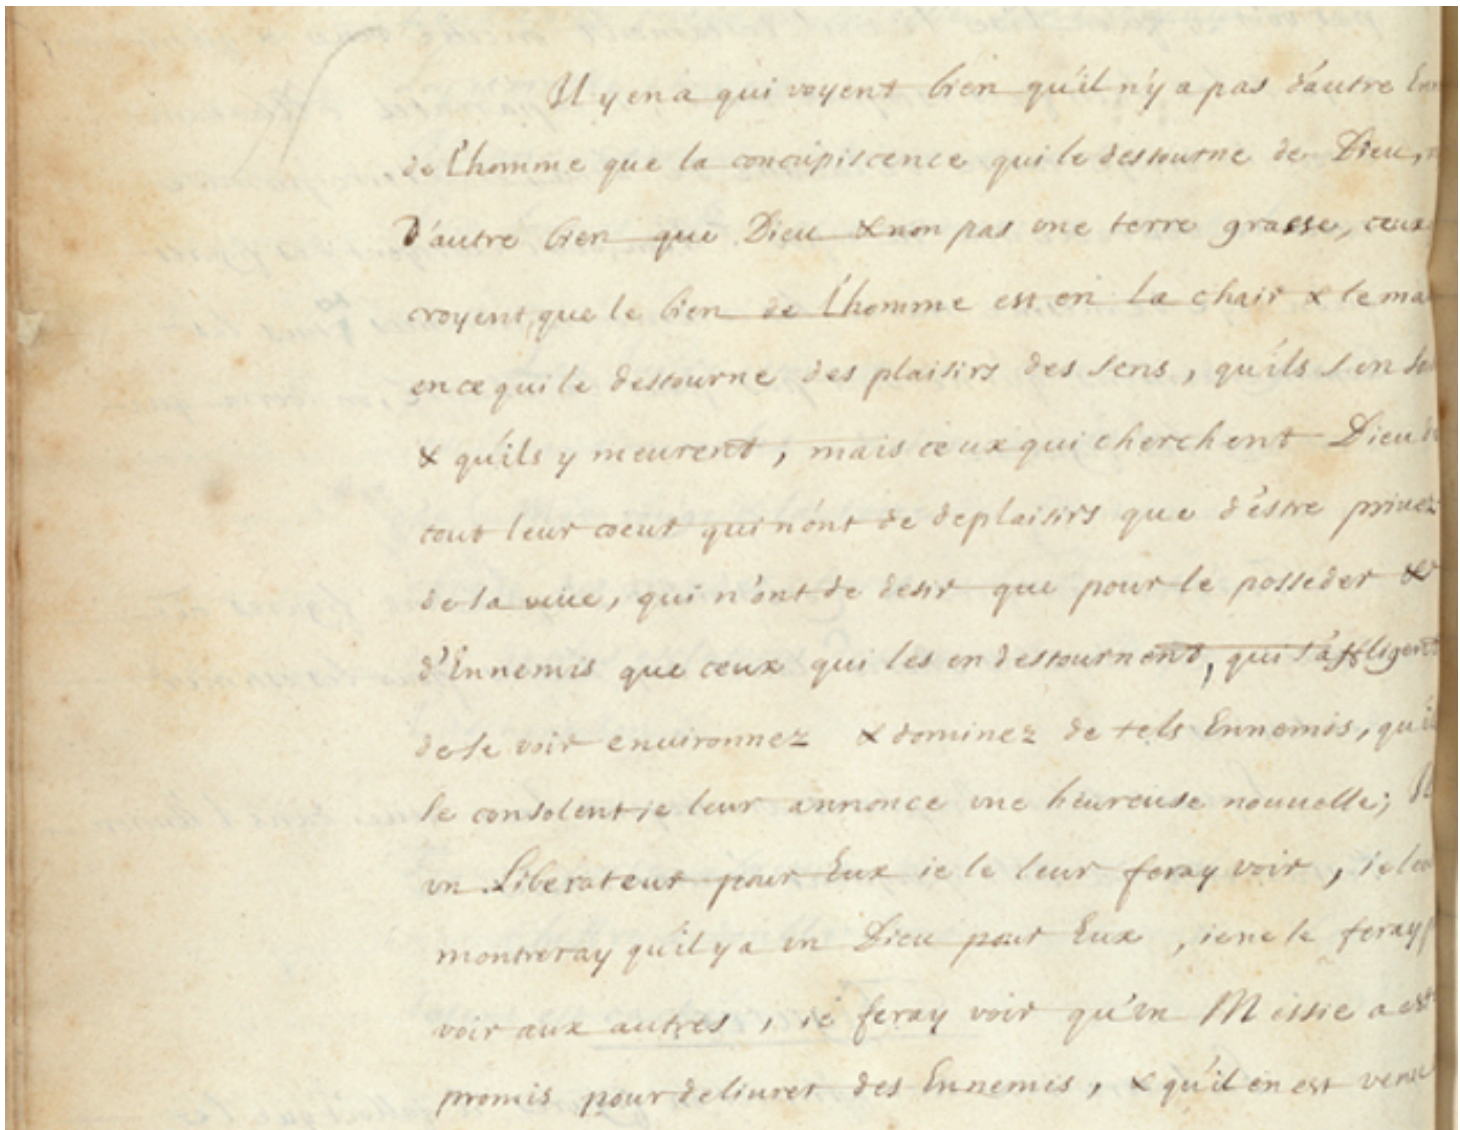 Il y en a qui voyent bien qu'il n'y a pas d'autre
de l'homme que la concupiscence qui le destourne de Dieu,
D'autre bien que Dieu & non pas une terre grasse, ceux
croyent que le bien de l'homme est en la chair & le ma
en ce qui le destourne des plaisirs des sens, qu'ils s'en
& qu'ils y meurent, mais ceux qui cherchent Dieu
tout leur coeur qui n'ont de deplaisirs que d'estre privez
de la veue, qui n'ont de desir que pour le posseder &
d'Ennemis que ceux qui les en destournent, qui s'affligent
de se voir environnez & dominez de tels Ennemis, qu'i
se consolent ie leur annonce vne heureuse nouuelle;
vn Liberateur pour Eux ie le leur feray voir, ie leu
montreray qu'il y a vn Dieu pour Eux, ie ne le feray
voir aux autres, ie feray voir qu'vn Messie a est
promis pour deliurer des Ennemis, & qu'il en est venu